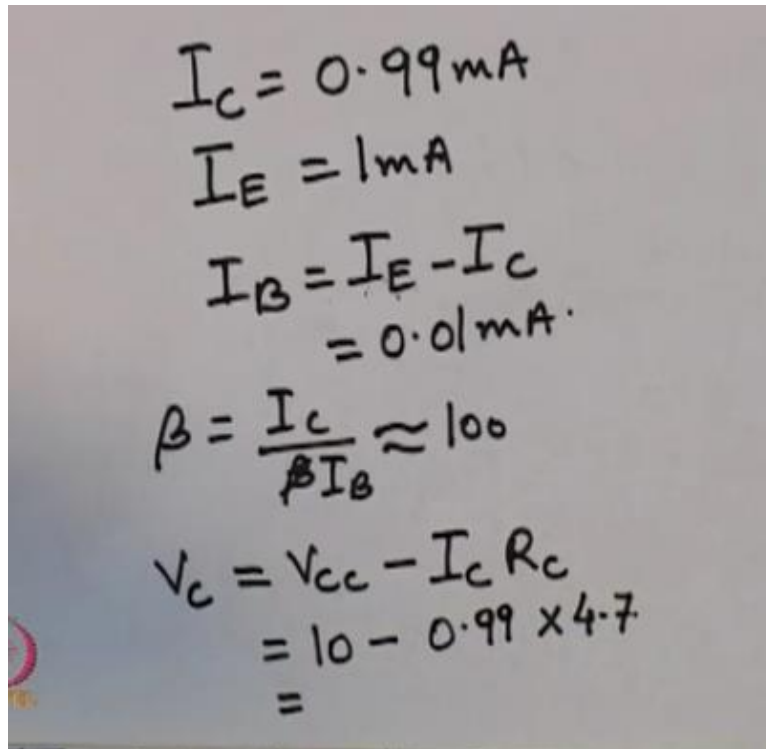 I_C = 0.99mA
I_E = 1mA
I_B = I_E - I_C
= 0.01mA.
β = I_C / βI_B ≈ 100
V_C = V_CC - I_C R_C
= 10 - 0.99 × 4.7
=